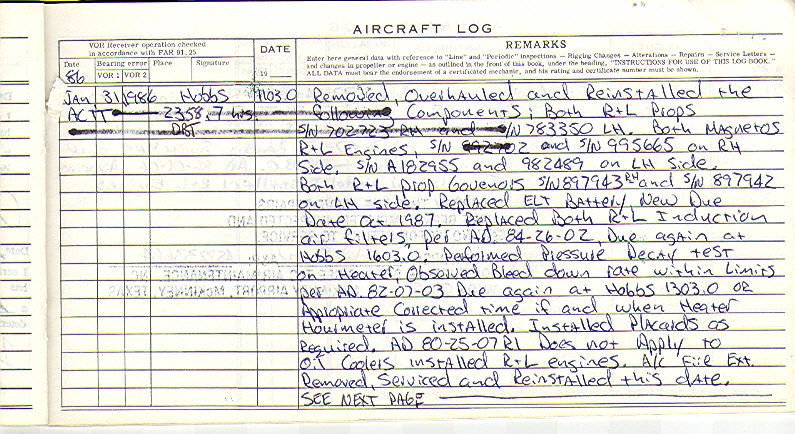 AIRCRAFT LOG
VOR Receiver operation checked
in accordance with FAR 91.25
DATE
REMARKS
Date
Bearing error
Place
Signature
VOR 1
VOR 2
86
19
Enter here general data with reference to "Line" and "Periodic" inspections — Rigging Changes — Alterations — Repairs — Service Letters —
and changes in propeller or engine — as outlined in the front of this book, under the heading, "INSTRUCTIONS FOR USE OF THIS LOG BOOK."
ALL DATA must bear the endorsement of a certificated mechanic, and his rating and certificate number must be shown.
Jan, 31, 1986 Hobbs 1103.0 Removed, Overhauled and Reinstalled the
ACTT 2358.7 hrs. following Components; Both R+L Props
S/N 702723 RH and S/N 783350 LH. Both Magnetos
R+L Engines, S/N and S/N 995665 on RH
Side, S/N A182955 and 982489 on LH Side.
Both R+L Prop Govenors S/N 897943 RH and S/N 897942
on LH side. Replaced ELT Battery, New Due
Date Oct 1987. Replaced Both R+L Induction
air filters, per AD 84-26-02, Due again at
Hobbs 1603.0. Performed Pressure Decay test
on Heater, Observed Bleed down rate within Limits
per AD 82-07-03 Due again at Hobbs 1303.0 or
Appropiate Corrected time if and when Heater
Hourmeter is installed. Installed Placards as
Required. AD 80-25-07 R1 Does not Apply to
Oil Coolers installed R+L engines. A/C Fire Ext.
Removed, Serviced and Reinstalled this date.
SEE NEXT PAGE